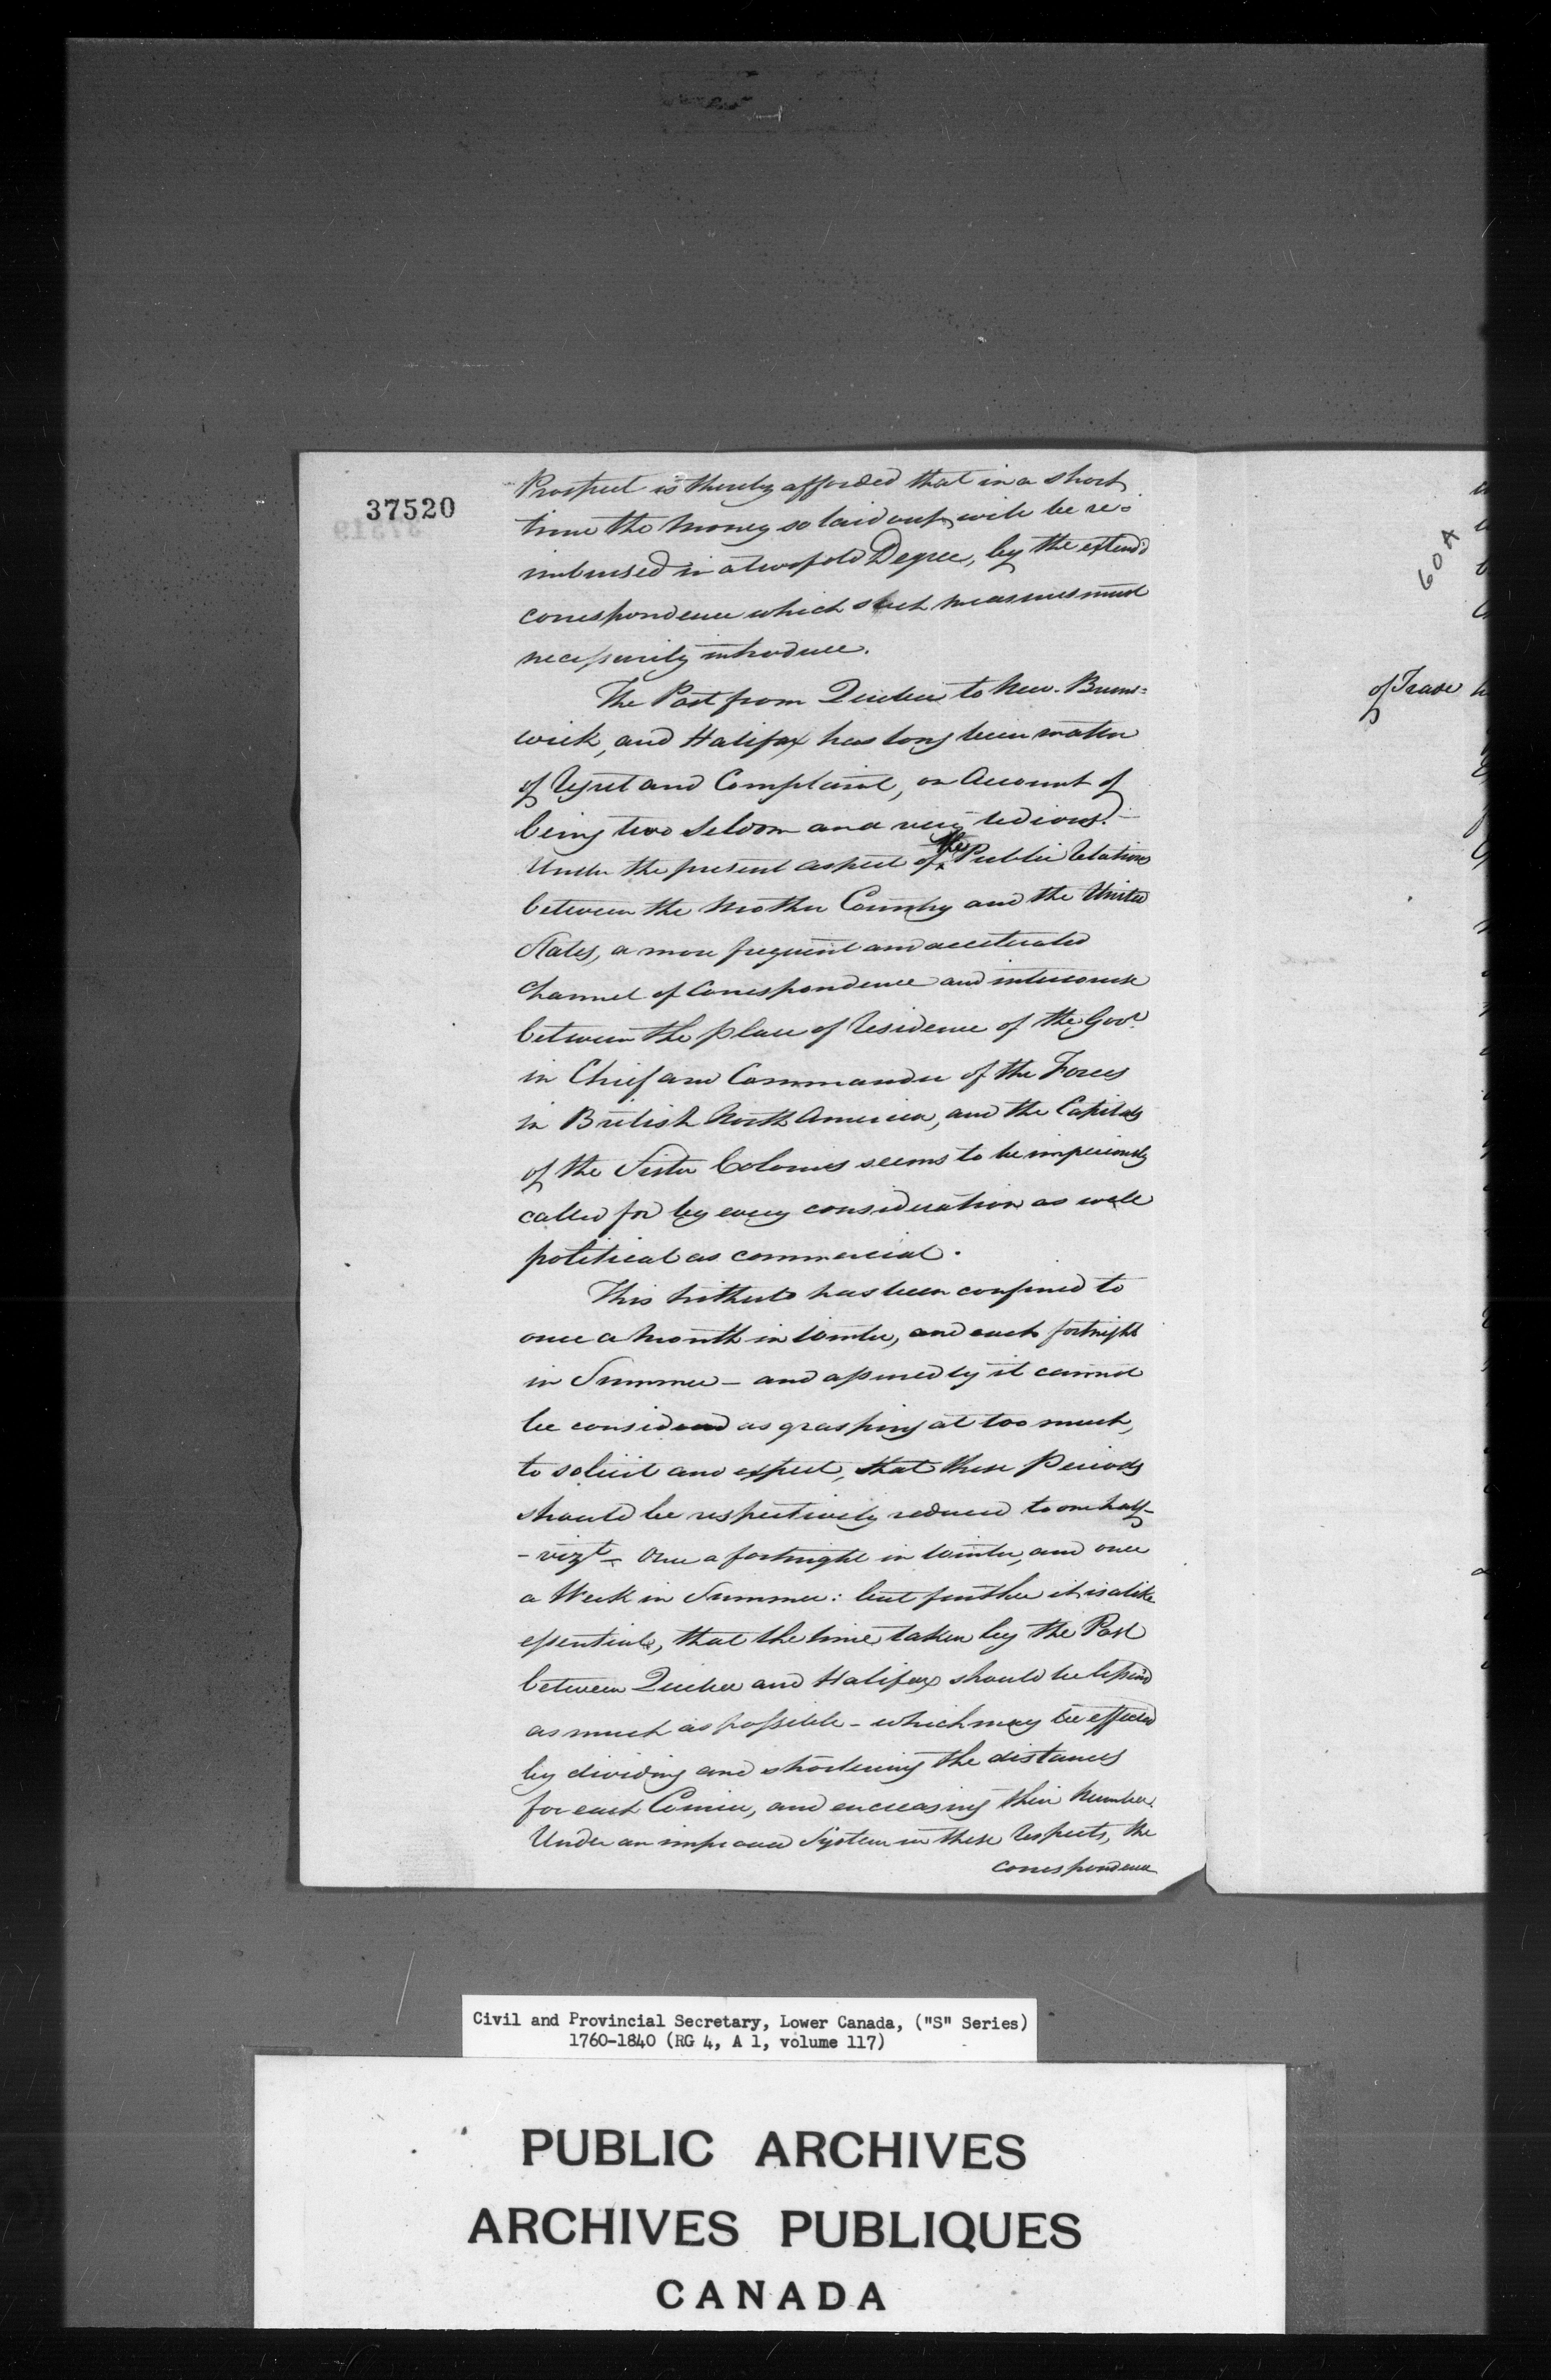 37520
Prospect is thereby afforded that in a short
time the Money so laid out, will be re=
imbursed in a twofold Degree, by the extend'd
correspondence which such measures must
necessarily introduce.
The Post from Quebec to New-Bruns=
wick, and Halifax has long been matter
of Regret and Complaint, on Account of
being two seldom and very tedious.
Under the present aspect of the Public Relations
between the Mother Country and the United
States, a more frequent and accelerated
Channel of Correspondence and intercourse
between the place of Residence of the Govr
in Chief and Commander of the Forces
in British North America, and the Capitals
of the Sister Colonies seems to be imperiously
called for by every consideration as well
political as commercial.
This hitherto has been confined to
once a Month in Winter, and each fortnight
in Summer - and assuredly it cannot
be considered as grasping at too much,
to solicit and expect, that these Periods
should be respectively reduced to one half-
- vizt - Once a fortnight in Winter, and once
a Week in Summer: but further it is alike
essential, that the time taken by the Post
between Quebec and Halifax should be lessen'd
as much as possible - which may be effected
by dividing and shortening the distances
for each Courier, and encreasing their Number.
Under an improved System in these Respects, the
correspondence
60A
of Trade
Civil and Provincial Secretary, Lower Canada, ("S" Series)
1760-1840 (RG 4, A 1, volume 117)
PUBLIC ARCHIVES
ARCHIVES PUBLIQUES
CANADA